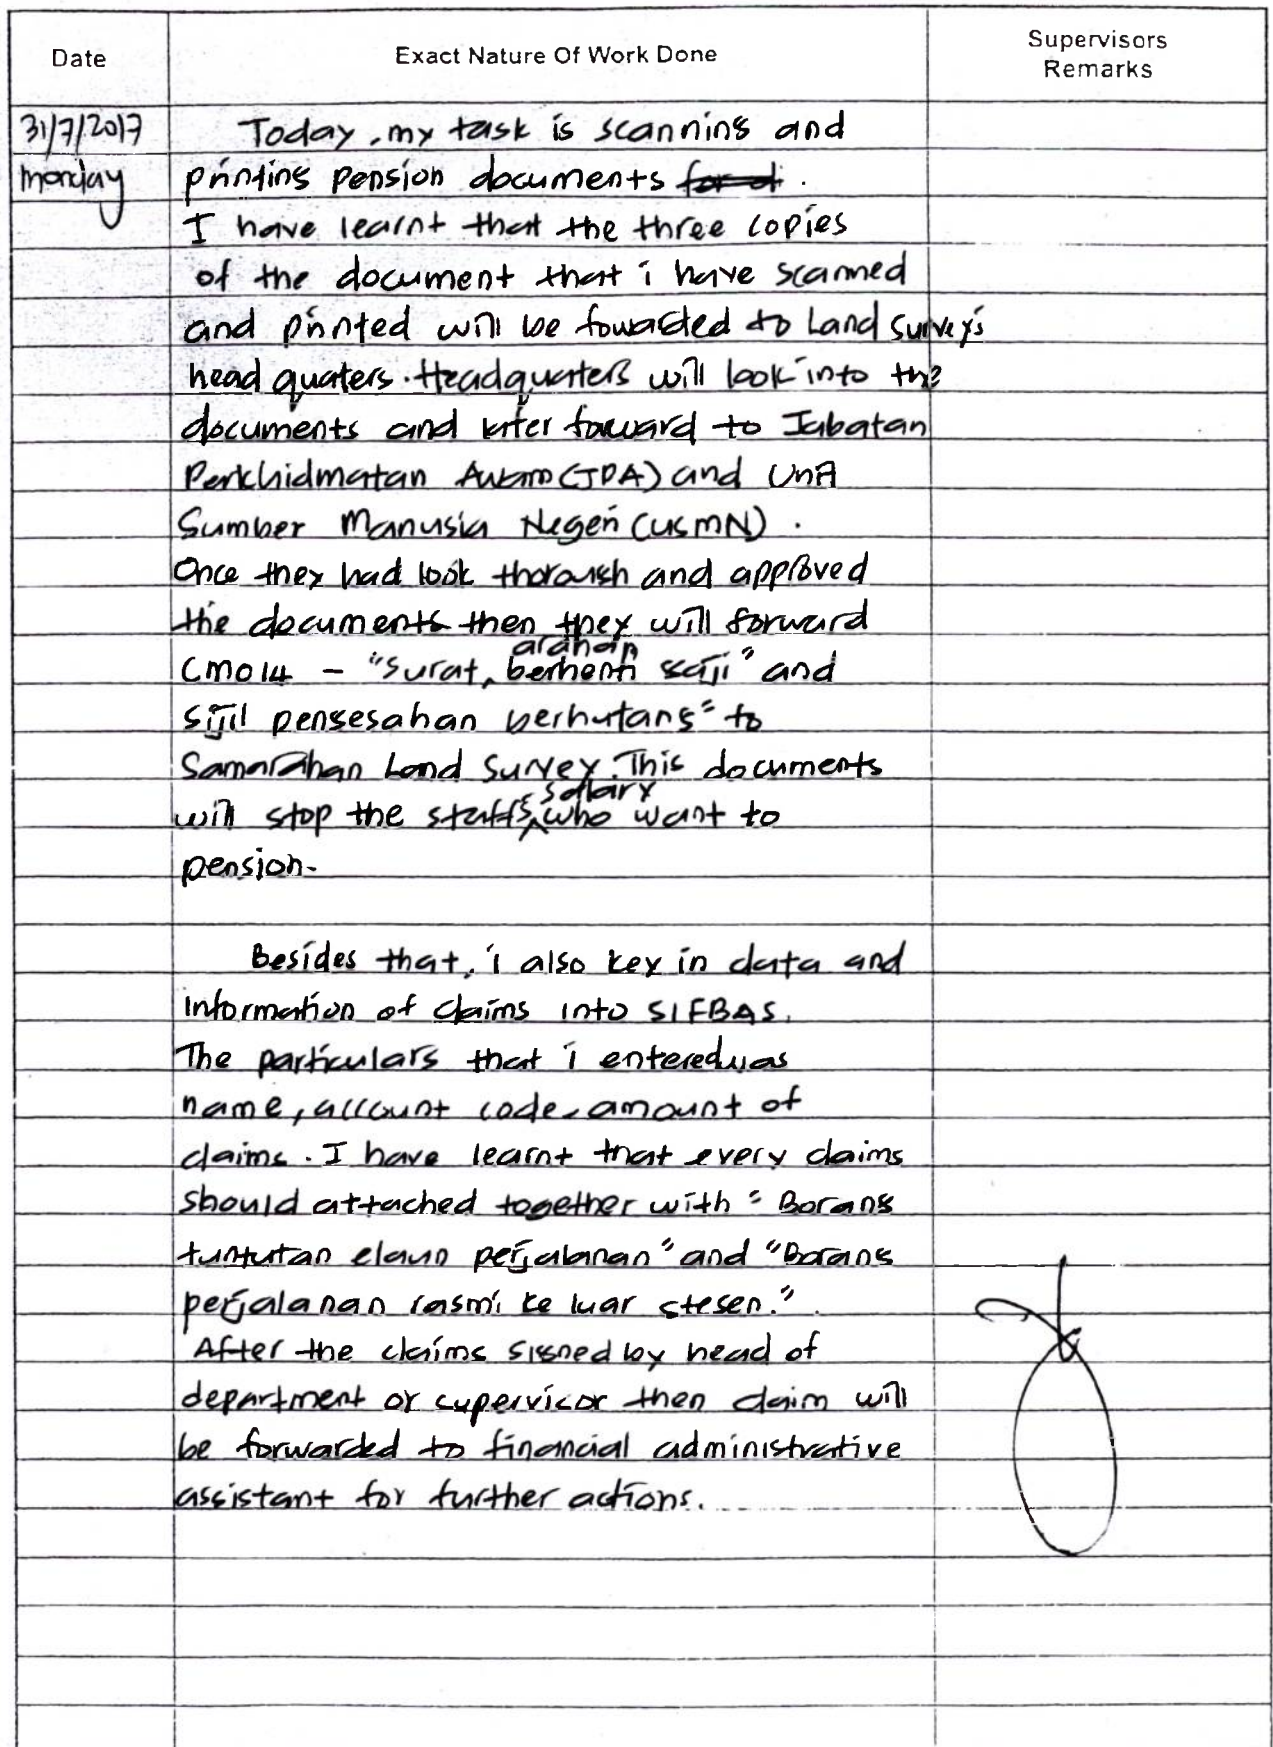 Date
Exact Nature Of Work Done
Supervisors
Remarks
31/7/2017
Monday
Today, my task is scanning and
printing pension documents
I have learnt that the three copies
of the document that i have scanned
and printed will be fowarded to Land Survey's
head quaters. Headquarters will look into the
documents and later foward to Jabatan
Perkhidmatan Awam (JPA) and Unit
Sumber Manusia Negeri (USMN).
Once they had look thorough and approved
the documents then they will forward
CM014 - "Surat arahan berhenti gaji" and
sijil pengesahan berhutang" to
Samarahan Land Survey. This documents
will stop the staffs salary who want to
pension.
Besides that, i also key in data and
information of claims into SIFBAS.
The particulars that i entered was
name, account code, amount of
claims. I have learnt that every claims
should attached together with "Borang
tuntutan elaun perjalanan" and "Borang
perjalanan rasmi ke luar stesen."
After the claims signed by head of
department or supervisor then claim will
be forwarded to financial administrative
assistant for further actions.